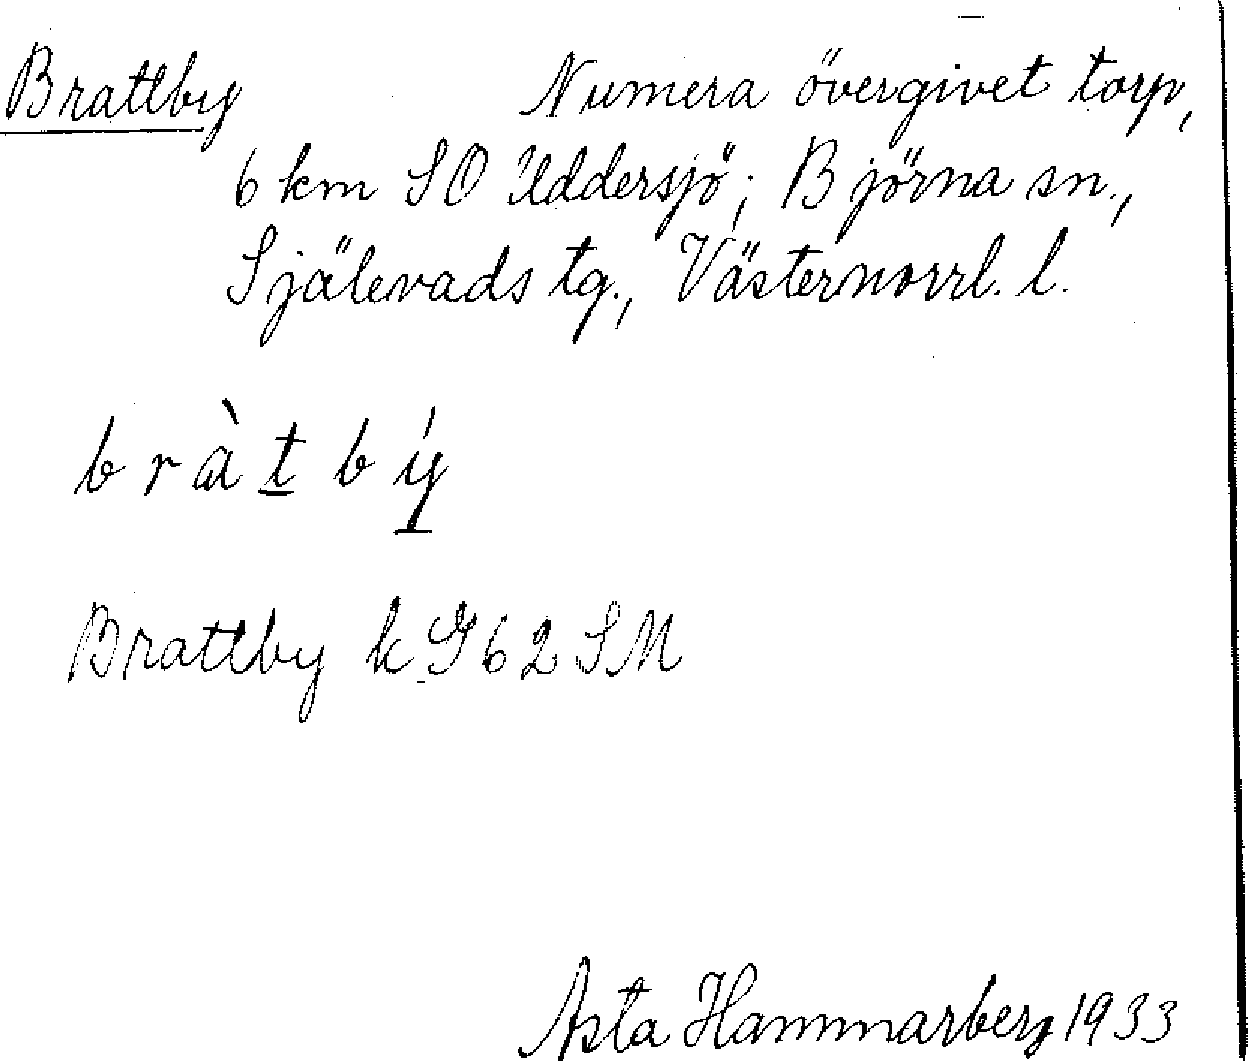 Brattby Numera övergivet torp,
6 km SO Uddersjö; Björna sn.,
Själevads tg., Västernorrl. l.
b r à t b ý
Brattby k G 62 SM
Asta Hammarberg 1933